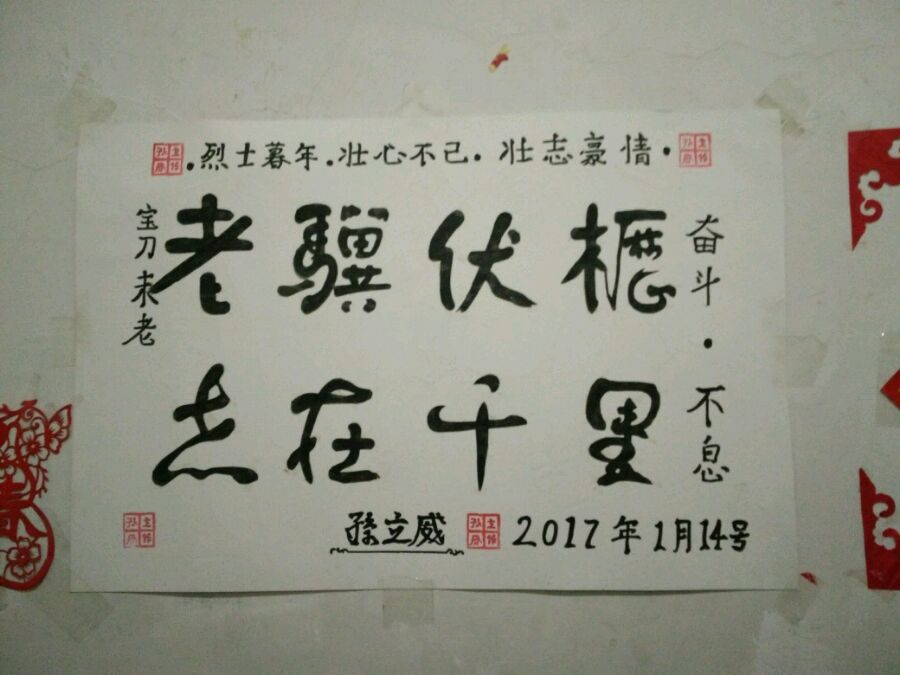 ·烈士暮年·壮心不已·壮志豪情·
宝刀未老
老骥伏枥
志在千里
奋斗·不息
孫立威
2017年1月14号